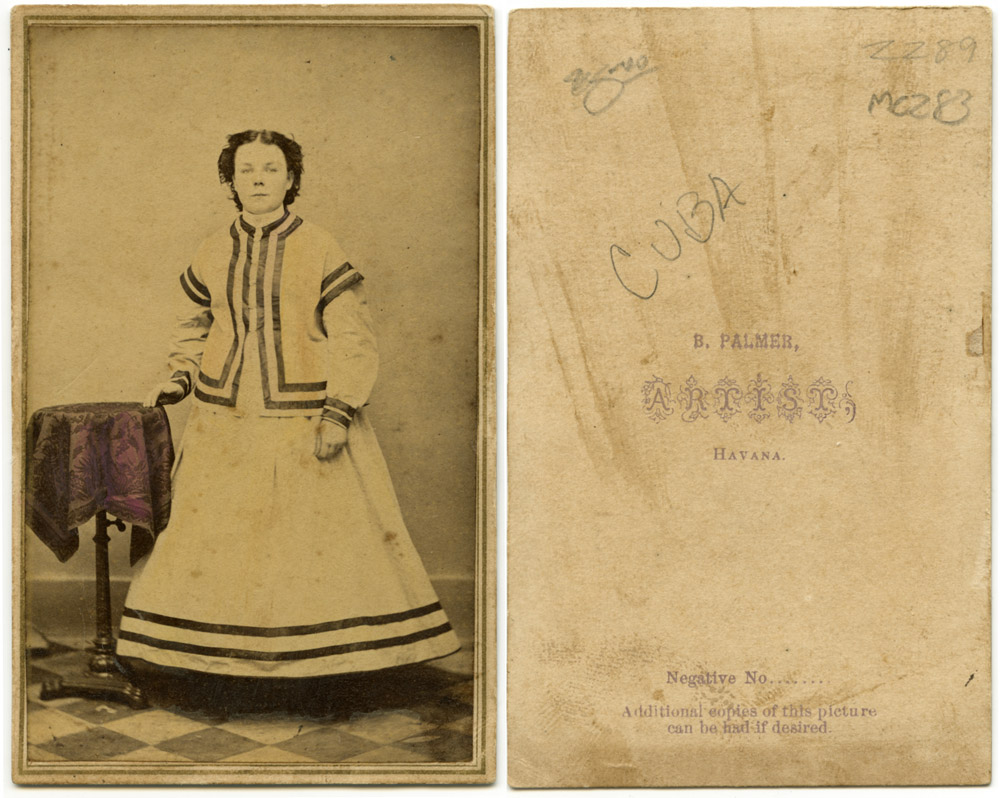 2289
MC283
CUBA
B. PALMER,
ARTIST,
HAVANA.
Negative No........
Additional copies of this picture
can be had if desired.